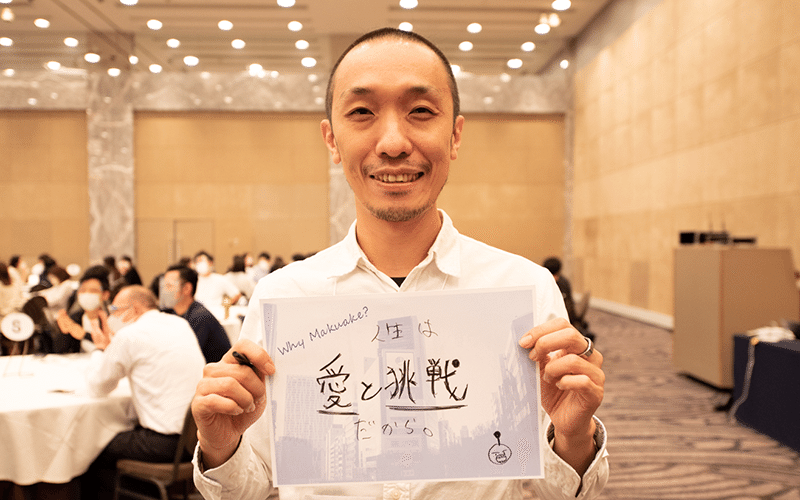 Why Makuake?
人生は
愛と挑戦
だから。
S